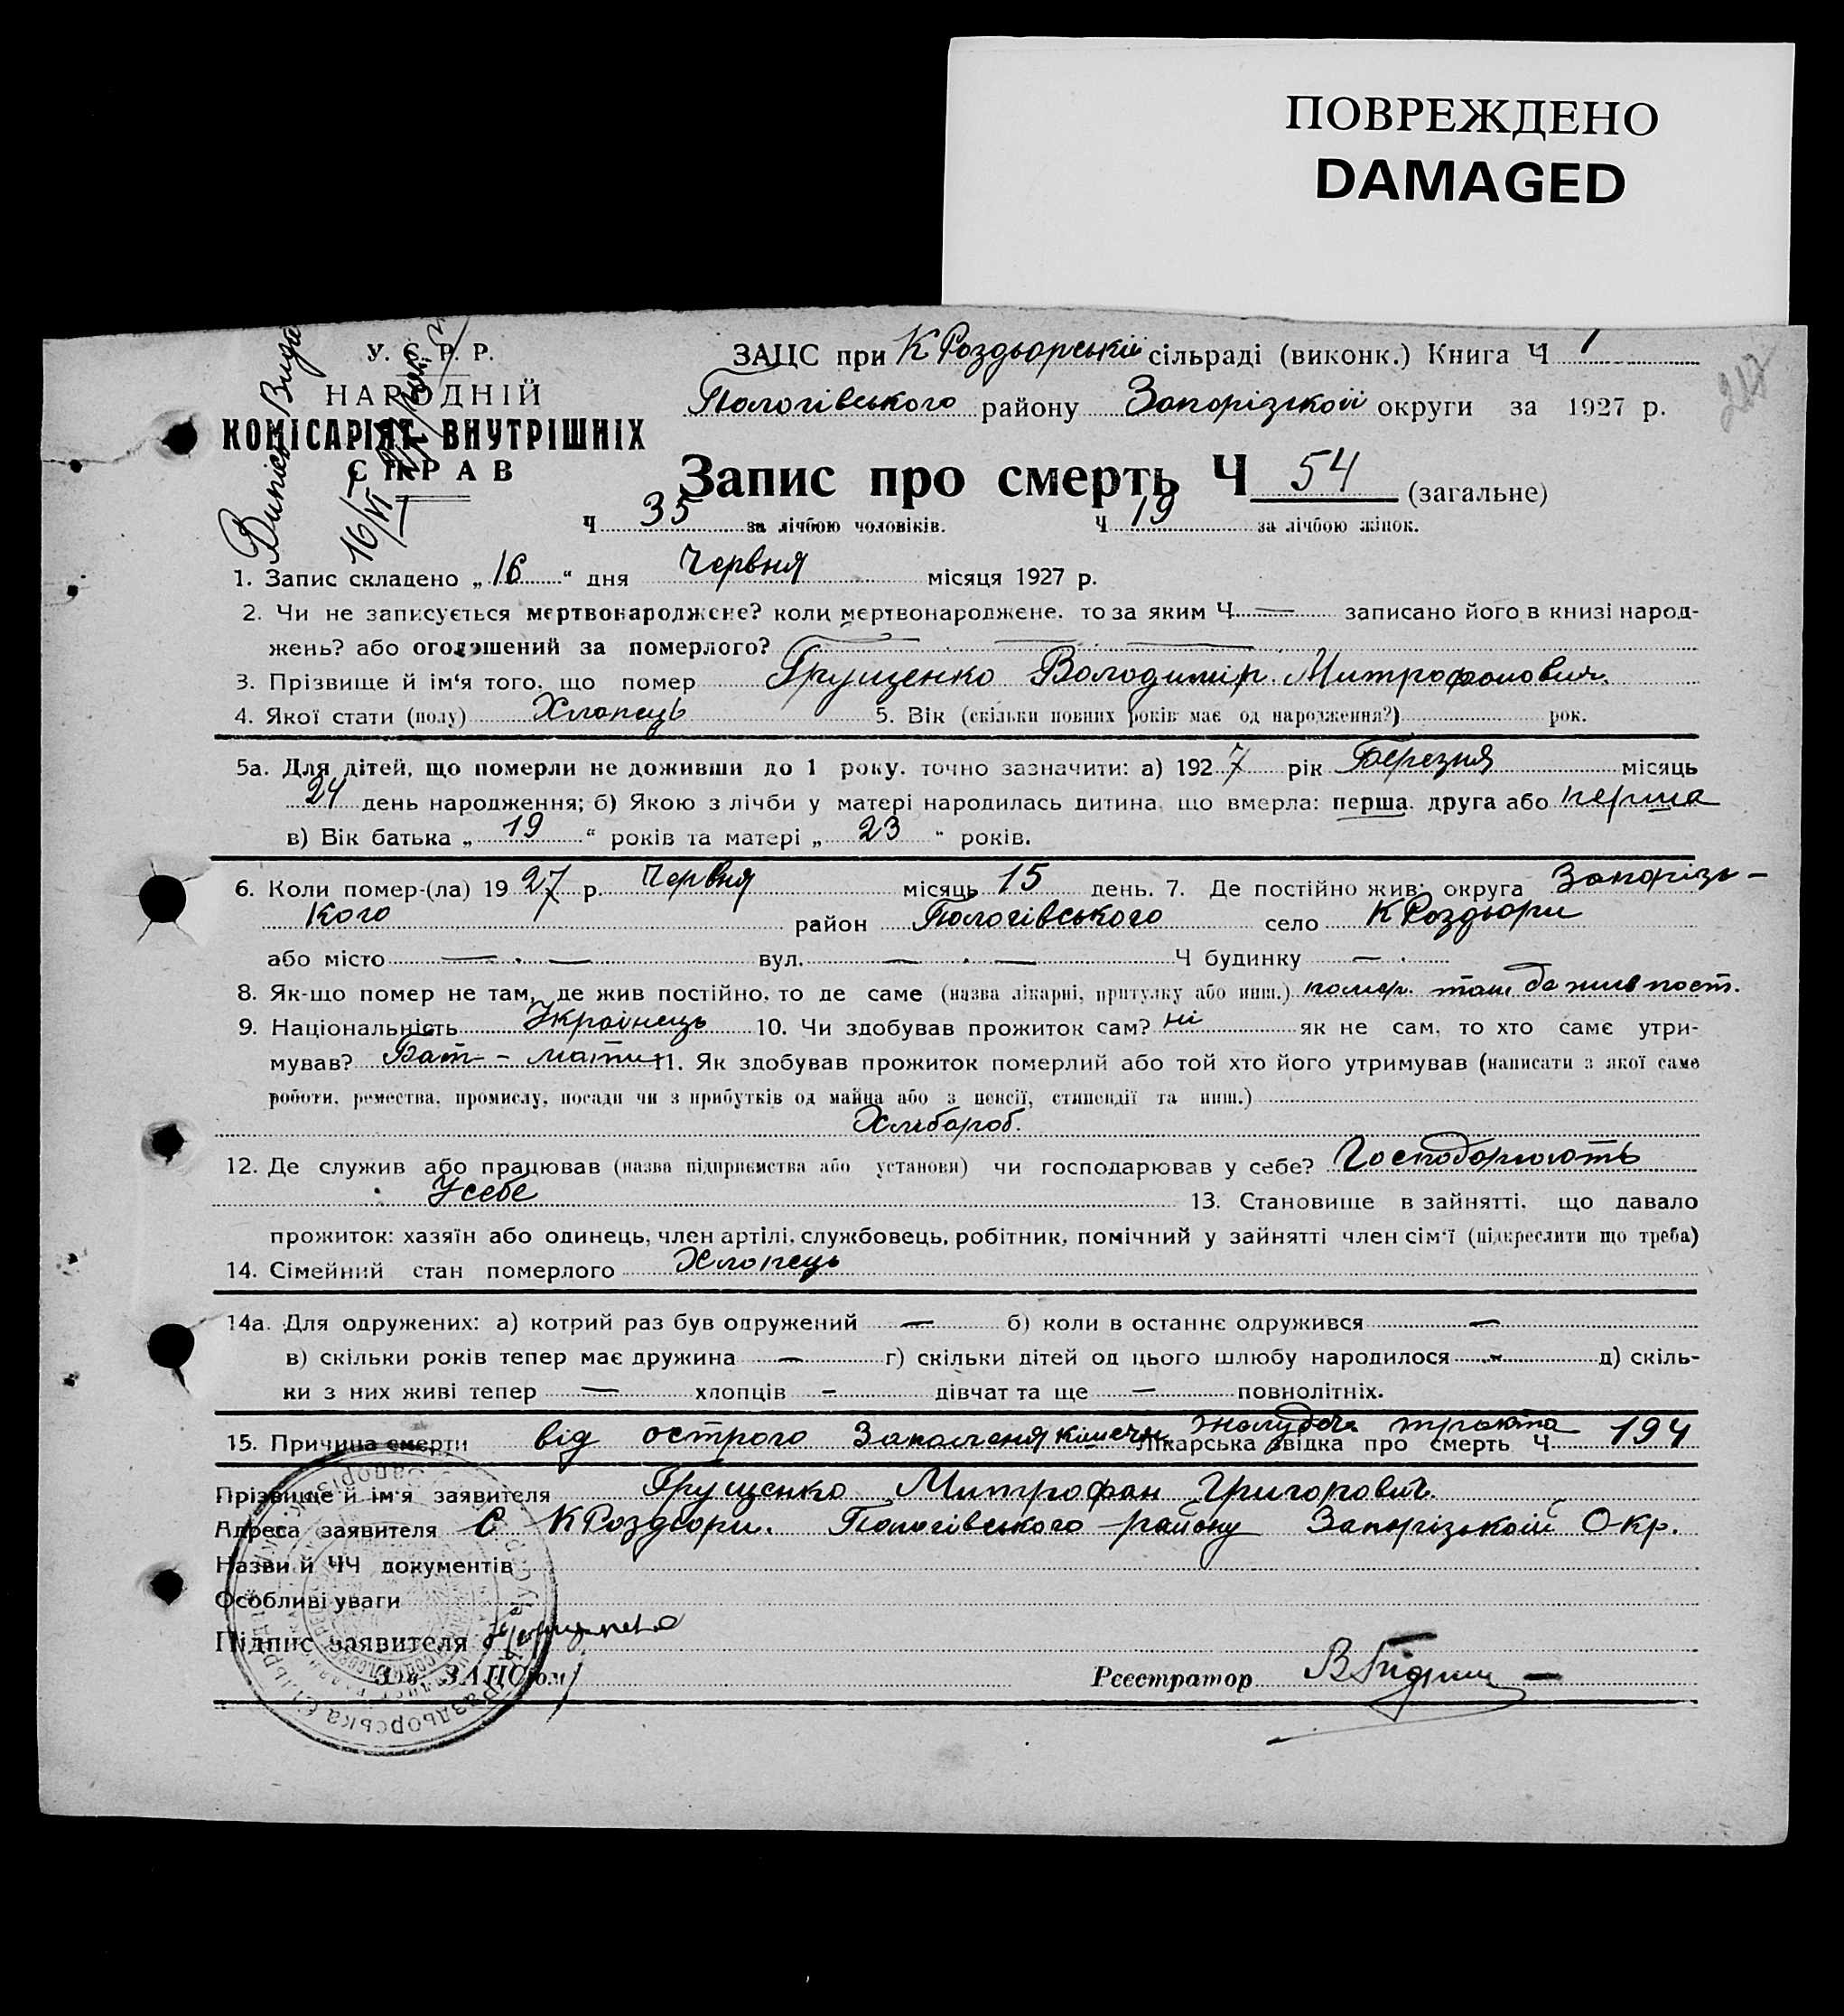 ПОВРЕЖДЕНО
DAMAGED
У. С. Р. Р.
НАРОДНІЙ
КОМІСАРІЯТ ВНУТРІШНІХ
СПРАВ
16/VI
217
ЗАЦС при К Роздьорській сільраді (виконк.) Книга Ч 1
Пологівського району Запорізкой округи за 1927 р.
Запис про смерть Ч 54 (загальне)
Ч 35 за лічбою чоловіків. Ч 19 за лічбою жінок.
1. Запис складено „ 16 “ дня Червня місяця 1927 р.
2. Чи не записується мертвонароджене? коли мертвонароджене. то за яким Ч — записано його в книзі народ-
жень? або оголошений за померлого? — — —
3. Прізвище й ім'я того, що помер Грущенко Володимір Митрофонович.
4. Якої стати (полу) Хлопець 5. Вік (скільки повних років має од народження?) рок.
5а. Для дітей, що померли не доживши до 1 року. точно зазначити: а) 1927 рік Березня місяць
24 день народження; б) Якою з лічби у матері народилась дитина, що вмерла: перша. друга або перша
в) Вік батька „ 19 “ років та матері „ 23 “ років.
6. Коли помер-(ла) 1927 р. Червня місяць 15 день. 7. Де постійно жив: округа Запорізь-
кого район Пологівського село К Роздьори
або місто — . — вул. — . — Ч будинку — .
8. Як-що помер не там, де жив постійно, то де саме (назва лікарні, притулку або инш.) помер. там, де жив пост.
9. Національність Українець 10. Чи здобував прожиток сам? ні як не сам, то хто саме утри-
мував? Бат - мати 11. Як здобував прожиток померлий або той хто його утримував (написати з якої саме
роботи, ремества, промислу, посади чи з прибутків од майна або з пенсії, стипендії та инш.)
Хлібороб.
12. Де служив або працював (назва підприємства або установи) чи господарював у себе? Господорюють
У себе 13. Становище в зайнятті, що давало
прожиток: хазяїн або одинець, член артілі, службовець, робітник, помічний у зайнятті член сім'ї (підкреслити що треба)
14. Сімейний стан померлого Хлопець
14а. Для одружених: а) котрий раз був одружений — б) коли в останнє одружився —
в) скільки років тепер має дружина — г) скільки дітей од цього шлюбу народилося — д) скіль-
ки з них живі тепер — хлопців - дівчат та ще — повнолітніх.
15. Причина смерти від острого Запоління кишечн жолудоч. тракта Лікарська звідка про смерть Ч 194
Прізвище й ім'я заявителя Грущенко Митрофан Григорович.
Адреса заявителя С К Роздьори. Пологівського району Запорізькой Окр.
Назви й ЧЧ документів
Особливі уваги
Підпис заявителя Грущенко
Зав. ЗАЦСом Реєстратор